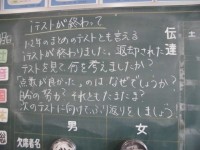 iテストが終わって
1・2年のまとめのテストとも言える
iテストが終わりました。返却された
テストを見て何を考えましたか？
「点数が良かった」のはなぜでしょうか？
次のテストに向けて、ふり返りをしましょう
伝達
男
女
欠席者名
土